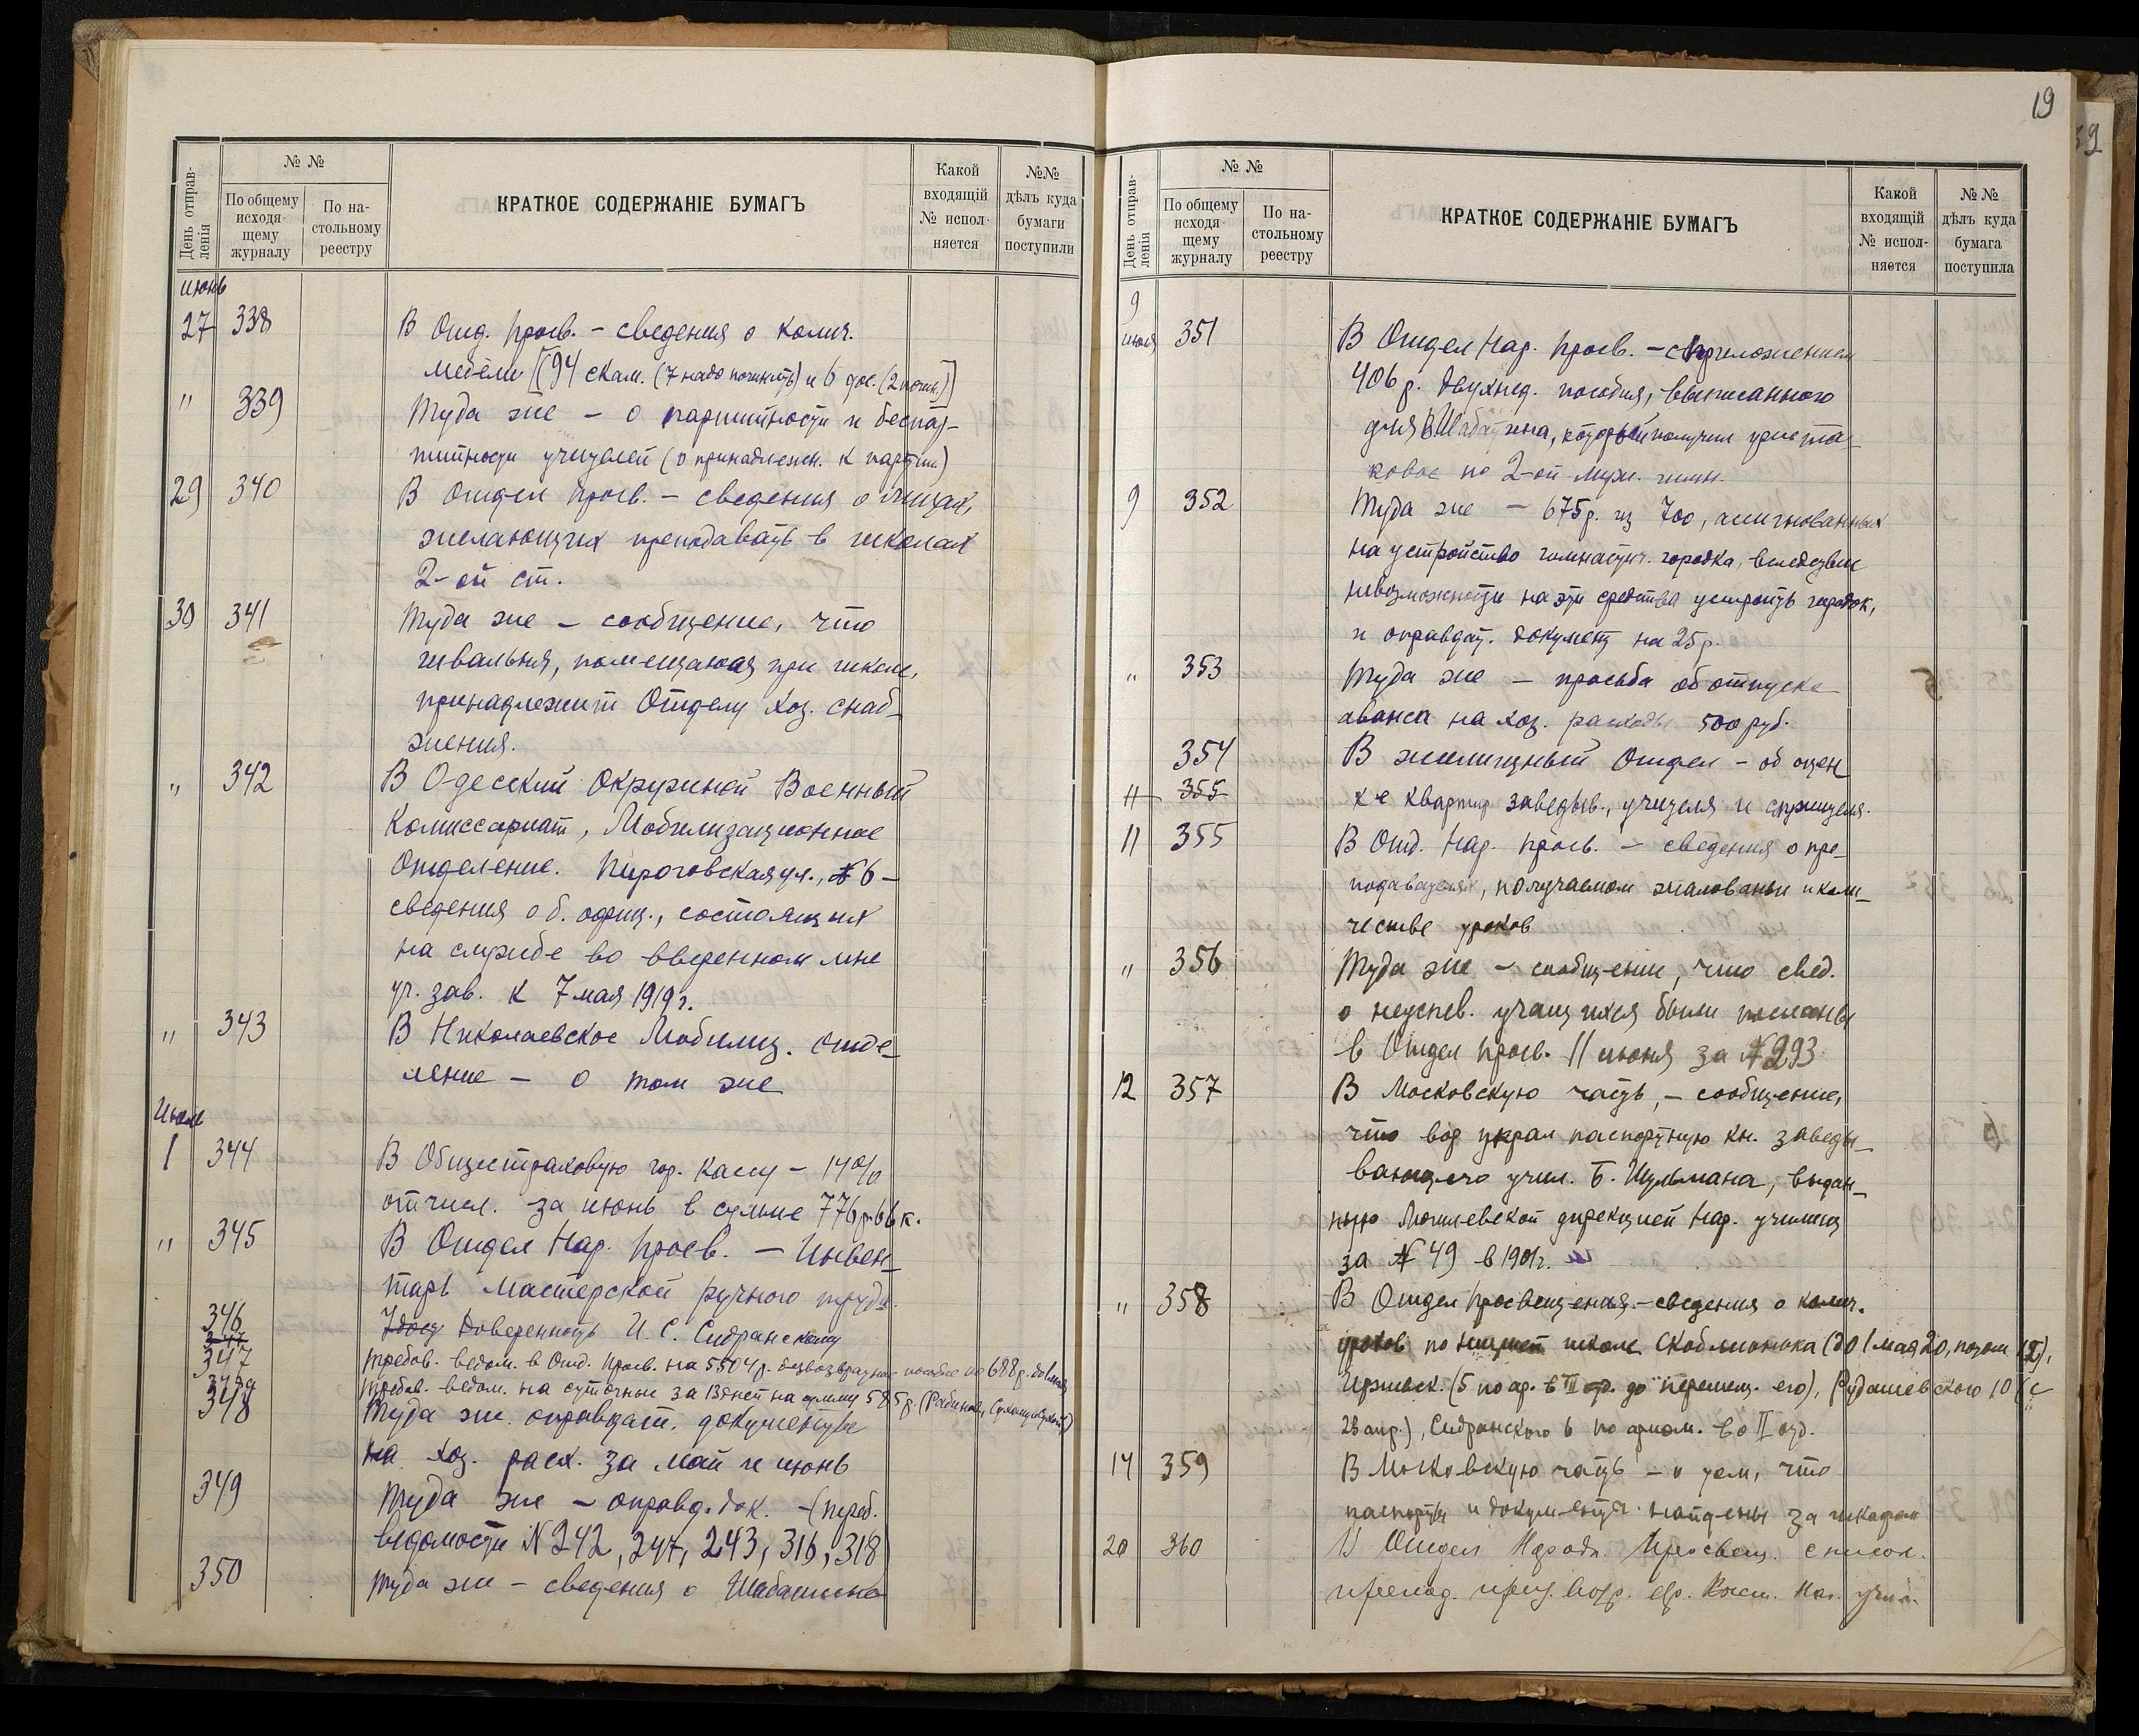 День отправ-
ленія
№ №
По общему
исходя-
щему
журналу
По на-
стольному
реестру
КРАТКОЕ СОДЕРЖАНІЕ БУМАГЪ
Какой
входящій
№ испол-
няется
№№
дѣлъ куда
бумаги
поступили
июнь
27 338 В Отд. Просв. – сведения о колич.
мебели [94 скам. (7 надо починить) и 6 дос. (2 почин)]
" 339 Туда же – о партийности и беспар-
тийности учителей (о принадлежн. к партии)
29 340 В Отдел Просв. – сведения о лицах,
желающих преподавать в школах
2-ой ст.
30 341 Туда же – сообщение, что
швальня, помещающая при школе,
принадлежит Отделу Хоз. снаб-
жения.
" 342 В Одесский Окружной Военный
Комиссариат, Мобилизационное
Отделение. Пироговская ул., № 6 –
сведения о б. офиц., состоящих
на службе во вверенном мне
уч. зав. к 7 мая 1919 г.
" 343 В Николаевское Мобилиз. отде-
ление – о том же
Июль
1 344 В Общестраховую гор. кассу – 14%
отчисл. за июнь в сумме 776 р. 66 к.
" 345 В Отдел Нар. Просв. – Инвен-
тарь Мастерской ручного труда.
346 Доверенность И. С. Сидранскому
347 Требов. ведом. в Отд. Просв. на 5504 р. безвозвратное пособие по 688 р.
Требов. ведом. на суточные за 13 дней на сумму 585 р.
348 Туда же оправдат. документы
на хоз. расх. за май и июнь
349 Туда же – оправд. док. – (треб.
ведомости № 242, 247, 243, 316, 318
350 Туда же – сведения о Шабашкине
19
39
День отправ-
ленія
№ №
По общему
исходя-
щему
журналу
По на-
стольному
реестру
КРАТКОЕ СОДЕРЖАНІЕ БУМАГЪ
Какой
входящій
№ испол-
няется
№ №
дѣлъ куда
бумага
поступила
9
июля 351 В Отдел Нар. Просв. – с приложением
406 р. двухнед. пособия, выписанного
для В. Шабашкина, который получил уже та-
ковое по 2-ой муж. гимн.
9 352 Туда же – 675 р. из 700, асигнованных
на устройство гимнастич. городка, вследствие
невозможности на эти средства устроить городок,
и оправдат. документ на 25 р.
" 353 Туда же – просьба об отпуске
аванса на хоз. расходы 500 руб.
354 В жилищный Отдел – об оцен
11 355 ке квартир заведыв., учителя и служителя.
11 355 В Отд. Нар. Просв. – сведения о пре-
подавателях, получаемом жалованьи и коли-
честве уроков
" 356 Туда же – сообщение, что свед.
о неуспев. учащихся были посланы
в Отдел Просв. 11 июня за № 293
12 357 В Московскую часть, – сообщение,
что вор украл паспортную кн. заведы-
вающего учил. Б. Шульмана, выдан-
ную Могилевской дирекцией Нар. училищ
за № 49 в 1901 г.
" 358 В Отдел Просвещения – сведения о колич.
уроков по школе Скоблионока (до 1 мая 20, потом 12),
(5 по ар. в II отд. до перемещ. его), Рудашевского 10 (с
23 апр.), Сидранского 6 по ариом. во II отд.
14 359 В Московскую часть – о том, что
паспорты и документы найдены за шкафом
20 360 В Отдел Народн. Просвещ. список.
препод.